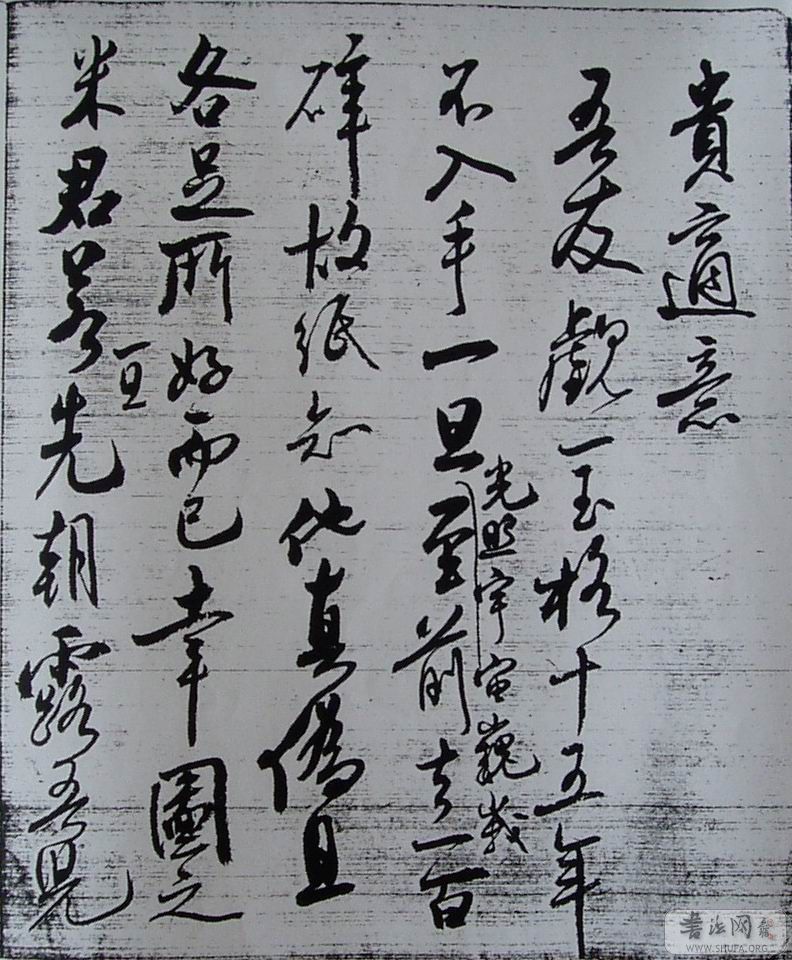 貴適意
吾友觀一玉格十五年
光照宇宙巍峩
不入手一旦至前去一百
碎故紙知他真偽且
各足所好而已幸圖之
一旦
米君若先朝露吾兒
书法网
WWW.SHUFA.ORG